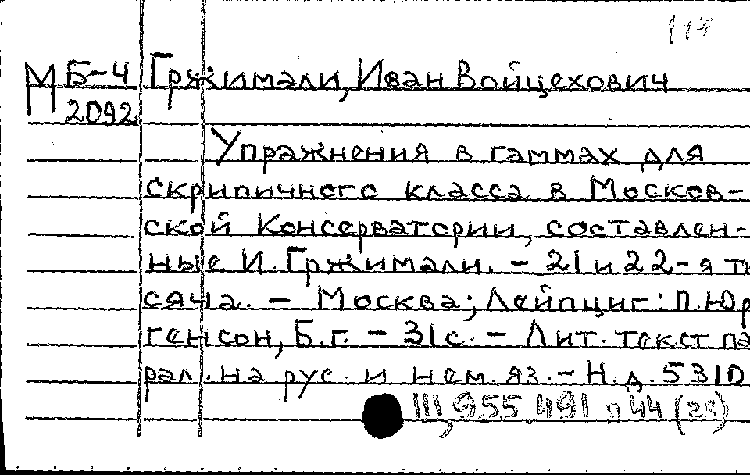 117
М Б-4 Гржимали, Иван Войцехович
2092
Упражнения в гаммах для
скрипичного класса в Москов-
ской Консерватории, составлен-
ные И. Гржимали. - 21 и 22-я ты
сяча. - Москва; Лейпциг: П. Юр
генсон, Б.г. - 31 с. - Лит. текст па
рал. на рус. и нем. яз. - Н.д. 5310
111,955.491